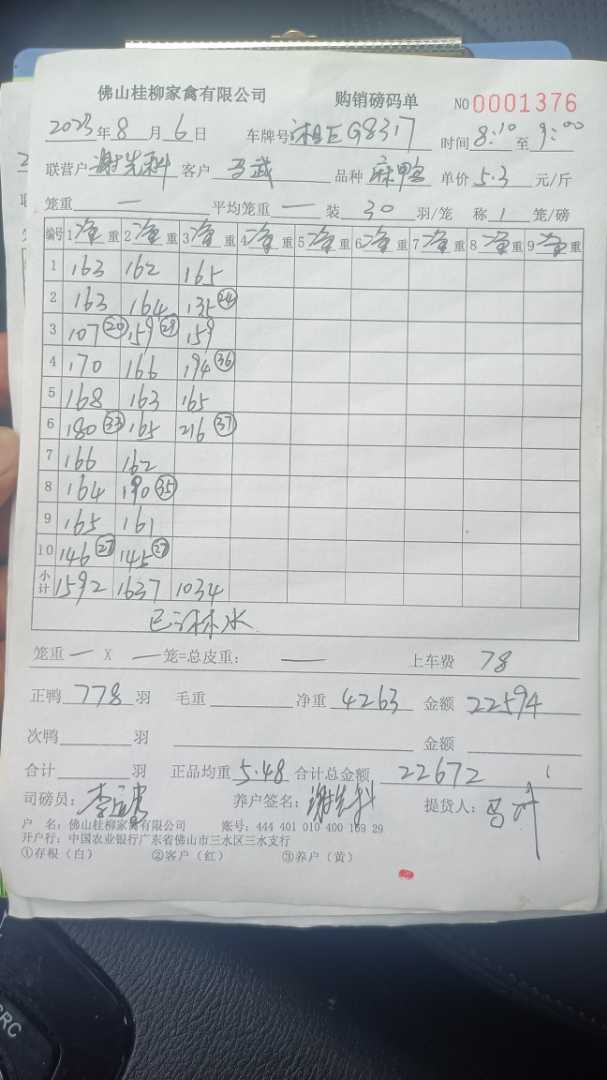 佛山桂柳家禽有限公司 购销磅码单 NO 0001376
2023年8月6日 车牌号湘E G8317 时间8:10至9:00
联营户谢先科 客户马武 品种麻鸭 单价5.3元/斤
笼重— 平均笼重—装30羽/笼 称1笼/磅
编号 1净重 2净重 3净重 4净重 5净重 6净重 7净重 8净重 9净重
1 163 162 165
2 163 164 135㉔
3 107⑳ 159㉙ 159
4 170 166 194㊱
5 168 163 165
6 180㉝ 165 216㊲
7 166 162
8 164 190㉟
9 165 161
10 146㉗ 145㉗
小计 1592 1637 1034
已淋水
笼重—X—笼=总皮重:— 上车费 78
正鸭778羽 毛重 净重4263 金额22594
次鸭 羽 金额
合计 羽 正品均重5.48合计总金额22672
司磅员: 养户签名:谢先科 提货人:
户 名:佛山桂柳家禽有限公司 账号:444 401 010 400 169 29
开户行:中国农业银行广东省佛山市三水区三水支行
①存根(白) ②客户(红) ③养户(黄)
CRC